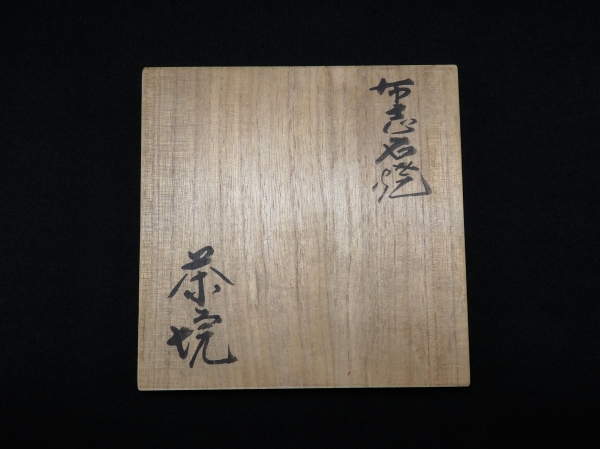 布志名焼
茶埦